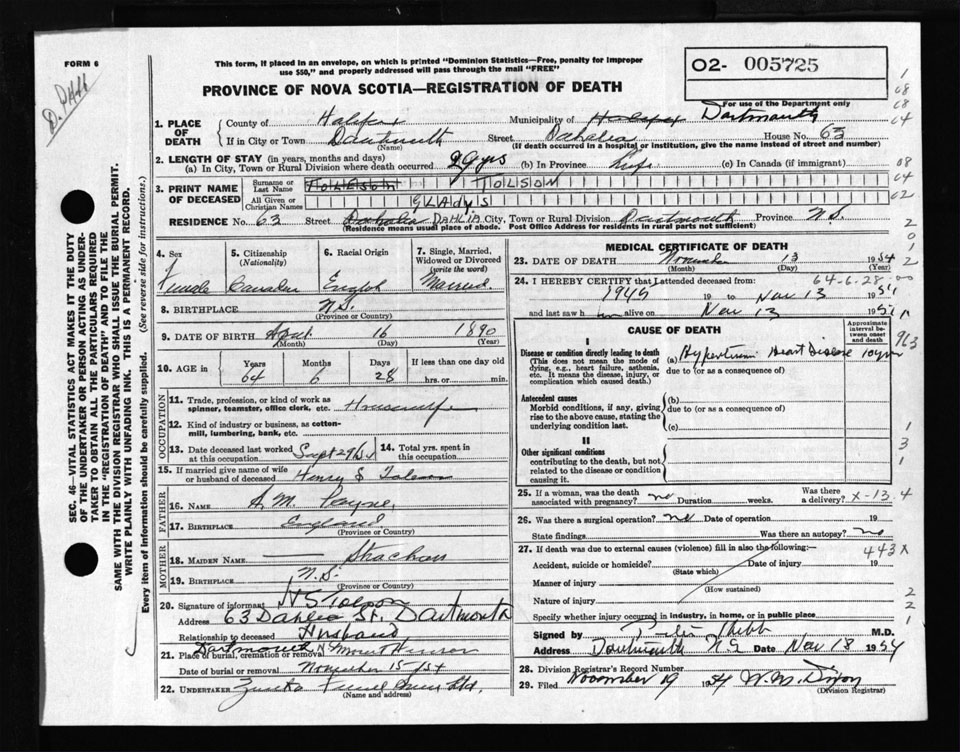 FORM 6
This form, if placed in an envelope, on which is printed "Dominion Statistics—Free, penalty for improper use $50," and properly addressed will pass through the mail "FREE"
02- 005725
For use of the Department only
PROVINCE OF NOVA SCOTIA—REGISTRATION OF DEATH
SEC. 46 - VITAL STATISTICS ACT MAKES IT THE DUTY
OF THE UNDERTAKER OR PERSON ACTING AS UNDER-
TAKER TO OBTAIN ALL THE PARTICULARS REQUIRED
IN THE "REGISTRATION OF DEATH" AND TO FILE THE
SAME WITH THE DIVISION REGISTRAR WHO SHALL ISSUE THE BURIAL PERMIT.
WRITE PLAINLY WITH UNFADING INK. THIS IS A PERMANENT RECORD.
Every item of information should be carefully supplied. (See reverse side for instructions.)
1. PLACE OF DEATH
County of Halifax Municipality of Dartmouth
If in City or Town Dartmouth Street Dahalia House No. 63
(Name) (If death occurred in a hospital or institution, give the name instead of street and number)
2. LENGTH OF STAY (in years, months and days)
(a) In City, Town or Rural Division where death occurred 29 yrs (b) In Province Life (c) In Canada (if immigrant)
3. PRINT NAME OF DECEASED
Surname or Last Name TOLESON TOLSON
All Given or Christian Names GLADYS
RESIDENCE No. 63 Street Dahalia DAHLIA City, Town or Rural Division Dartmouth Province N.S.
(Residence means usual place of abode. Post Office Address for residents in rural parts not sufficient)
4. Sex Female
5. Citizenship (Nationality) Canadian
6. Racial Origin English
7. Single, Married, Widowed or Divorced (write the word) Married
8. BIRTHPLACE N.S.
(Province or Country)
9. DATE OF BIRTH April 16 1890
(Month) (Day) (Year)
10. AGE in Years 64 Months 6 Days 28 If less than one day old hrs. or min.
OCCUPATION
11. Trade, profession, or kind of work as spinner, teamster, office clerk, etc. Housewife
12. Kind of industry or business, as cotton-mill, lumbering, bank, etc.
13. Date deceased last worked at this occupation Sept 29/54
14. Total yrs. spent in this occupation
15. If married give name of wife or husband of deceased Henry S Toleson
FATHER
16. NAME A. M. Payne
17. BIRTHPLACE England
(Province or Country)
MOTHER
18. MAIDEN NAME — Strachan
19. BIRTHPLACE N.S.
(Province or Country)
20. Signature of informant H S Tolson
Address 63 Dahlia St. Dartmouth
Relationship to deceased Husband
21. Place of burial, cremation or removal Dartmouth N.S. Mount Hermon
Date of burial or removal November 15/54
22. UNDERTAKER Funeral Ltd.
(Name and address)
MEDICAL CERTIFICATE OF DEATH
23. DATE OF DEATH November 13 1954
(Month) (Day) (Year)
64-6-28-00
24. I HEREBY CERTIFY that I attended deceased from:
1945 19 to Nov 13 1954
and last saw h alive on Nov 13 1954
CAUSE OF DEATH
Approximate interval between onset and death
I
Disease or condition directly leading to death
(This does not mean the mode of dying, e.g., heart failure, asthenia, etc. It means the disease, injury, or complication which caused death.)
(a) Hypertensive Heart Disease 10 yrs
due to (or as a consequence of)
Antecedent causes
Morbid conditions, if any, giving rise to the above cause, stating the underlying condition last.
(b)
due to (or as a consequence of)
(c)
II
Other significant conditions
contributing to the death, but not related to the disease or condition causing it.
25. If a woman, was the death associated with pregnancy? no Duration weeks. Was there a delivery? X-13.4
26. Was there a surgical operation? no Date of operation 19
State findings Was there an autopsy? no
27. If death was due to external causes (violence) fill in also the following:— 443X
Accident, suicide or homicide? Date of injury 19
(State which)
Manner of injury
(How sustained)
Nature of injury
Specify whether injury occurred in industry, in home, or in public place
Signed by M.D.
Address Dartmouth N.S. Nov 18 1954
28. Division Registrar's Record Number
29. Filed November 19 1954 W. M. Dixon
(Division Registrar)